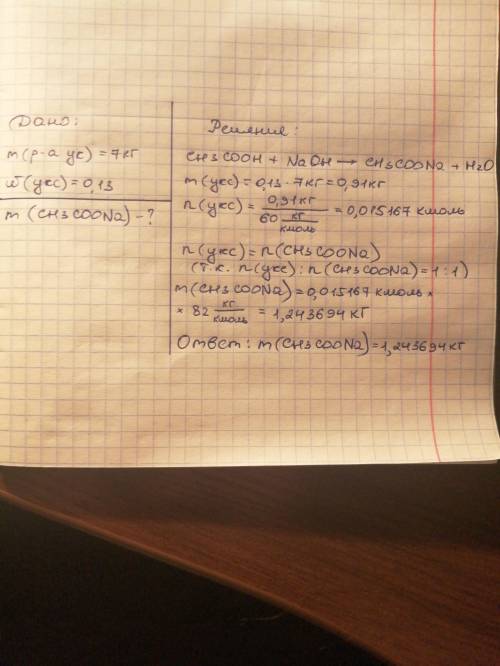 Дано:
m(р-а ук) = 7 кг
ω(укс) = 0,13
m(CH3COONa) - ?
Решение:
CH3COOH + NaOH → CH3COONa + H2O
m(укс) = 0,13 · 7кг = 0,91кг
n(укс) = 0,91кг / 60 кг/кмоль = 0,015167 кмоль
n(укс) = n(CH3COONa)
(т.к. n(укс) : n(CH3COONa) = 1 : 1)
m(CH3COONa) = 0,015167 кмоль ×
× 82 кг/кмоль = 1,243694 кг
Ответ: m(CH3COONa) = 1,243694 кг